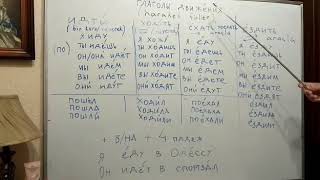 ГЛАГОЛЫ ДВИЖЕНИЯ
ИДТИ ХОДИТЬ ЕХАТЬ ЕЗДИТЬ
Я ИДУ Я ХОЖУ Я ЕДУ
(ПО) ТЫ ИДЁШЬ ТЫ ХОДИШЬ ТЫ ЕДЕШЬ
ОН/ОНА ИДЁТ ОН ХОДИТ ОН ЕДЕТ ОН ЕЗДИТ
МЫ ИДЁМ МЫ ХОДИМ МЫ ЕДЕМ МЫ ЕЗДИМ
ВЫ ИДЁТЕ ВЫ ХОДИТЕ ВЫ ЕДЕТЕ ВЫ ЕЗДИТЕ
ОНИ ИДУТ ОНИ ХОДЯТ ОНИ ЕДУТ ОНИ ЕЗДЯТ
ПОШЁЛ ХОДИЛ ПОЕХАЛ ЕЗДИЛ
ПОШЛА ХОДИЛА ПОЕХАЛА ЕЗДИЛА
ПОШЛИ ХОДИЛИ ПОЕХАЛИ ЕЗДИЛИ
+ В/НА + 4 ПАДЕЖ
Я ЕДУ В ОДЕССУ
ОН ИДЁТ В СПОРТЗАЛ